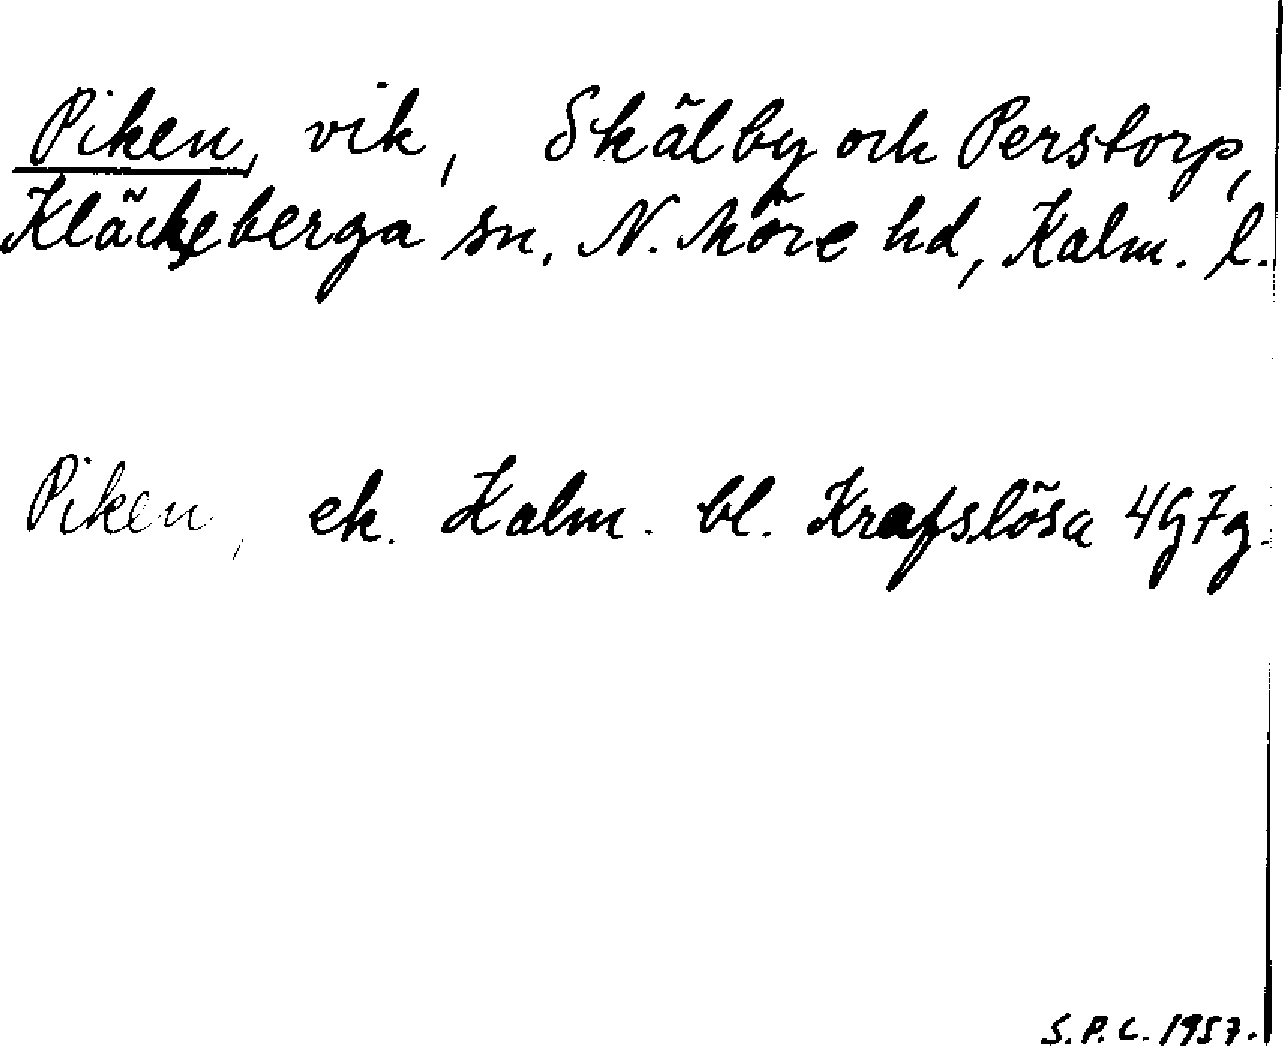 Piken, vik, Skälby och Perstorp,
Kläckeberga sn. N. Möre hd, Kalm. l.
Piken, ek. Kalm. bl. Krafslösa 4G7g.
S.P.C. 1957.